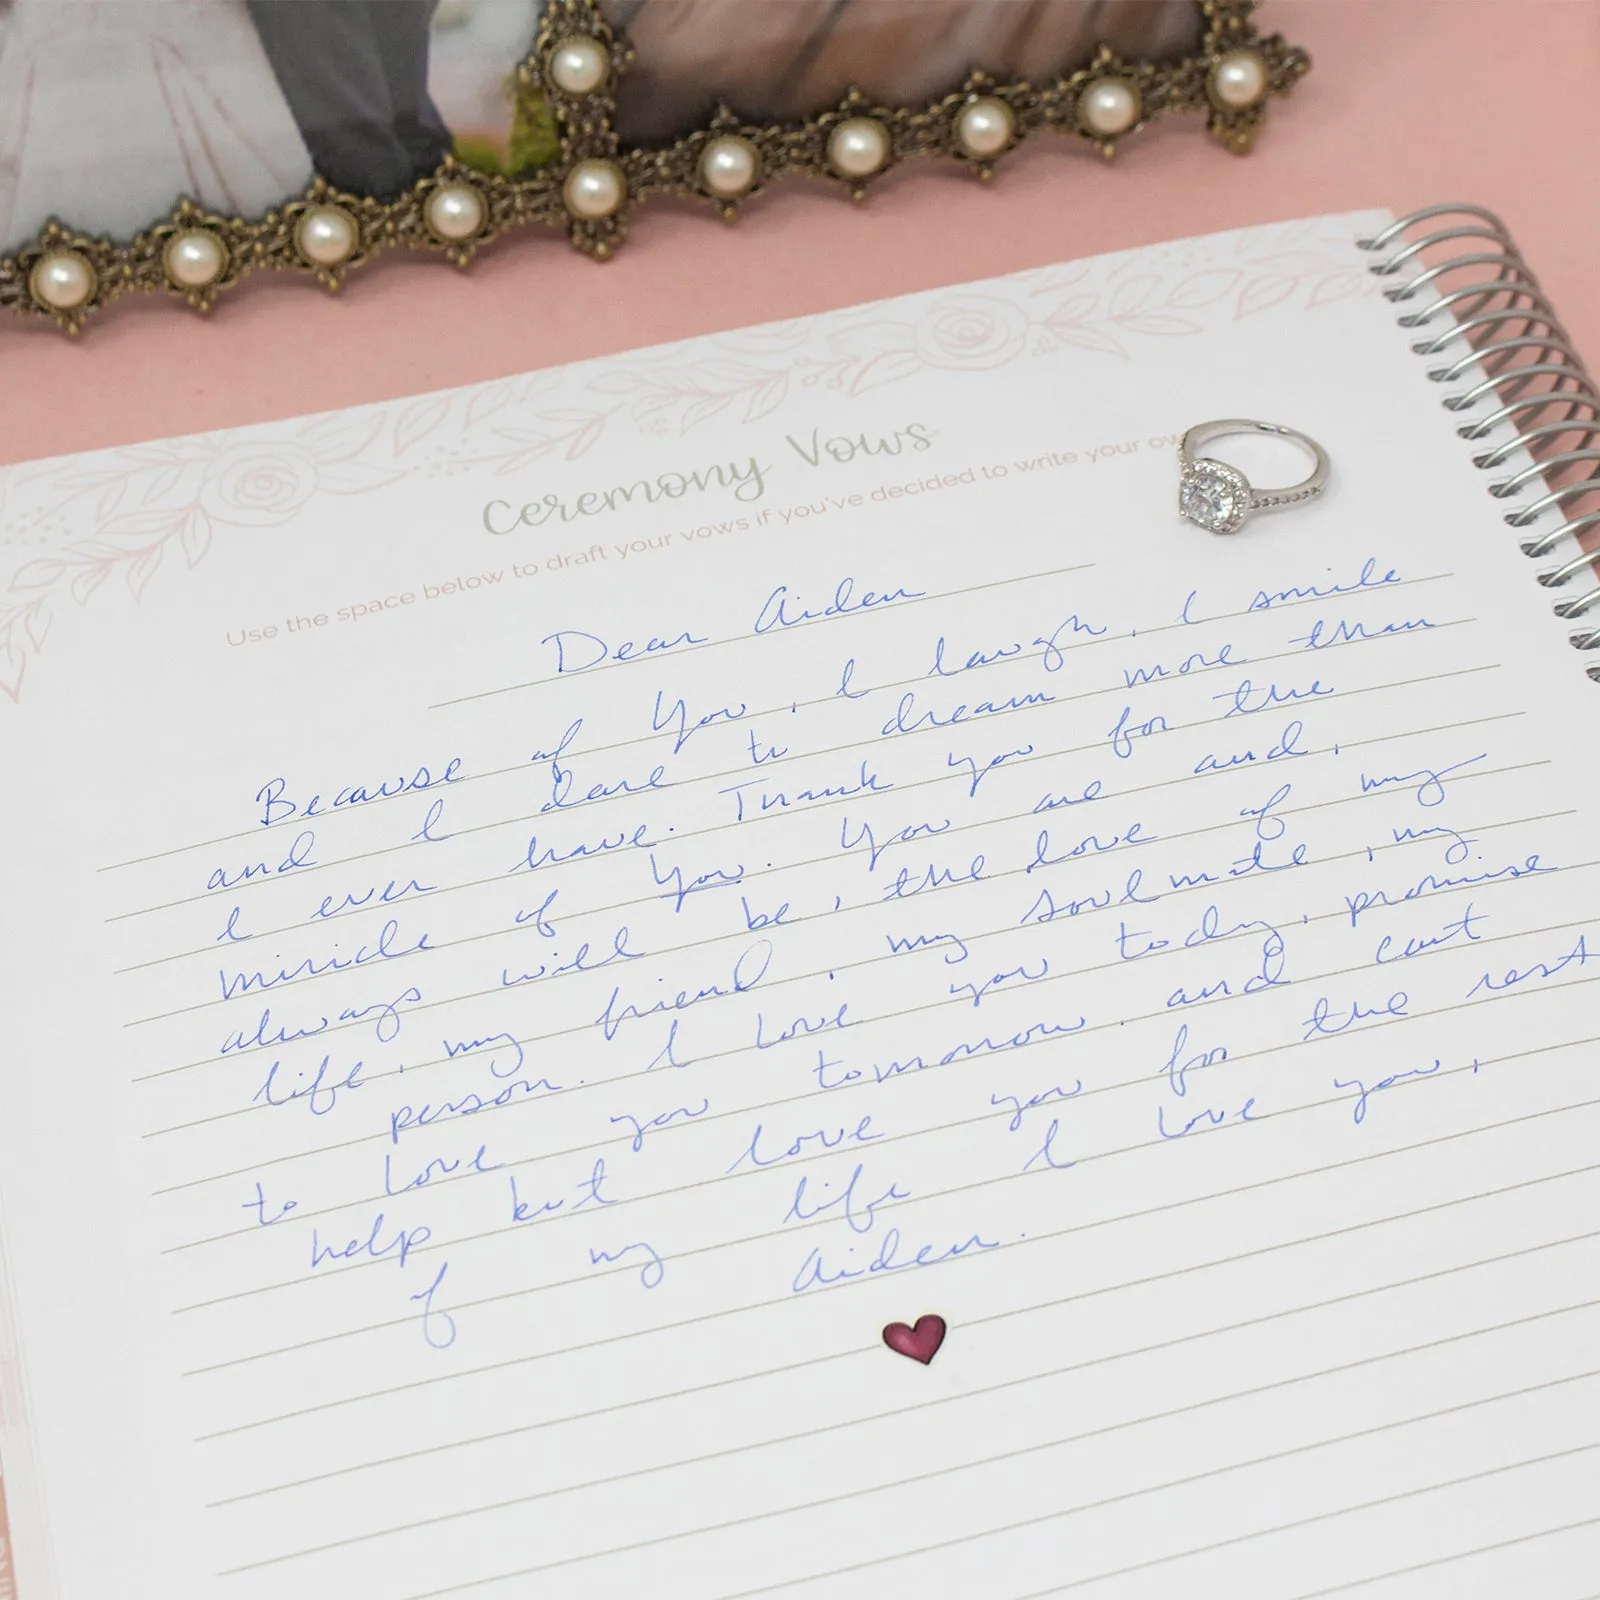 Ceremony Vows
Use the space below to draft your vows if you've decided to write your ow
Dear Aiden
Because of You, I laugh, I smile
and I dare to dream more than
I ever have. Thank you for the
miricle of You. You are and,
always will be, the love of my
life, my friend, my soulmate, my
person. I love you today, promise
to love you tomorrow, and cant
help but love you for the rest
of my life I love you,
Aiden.